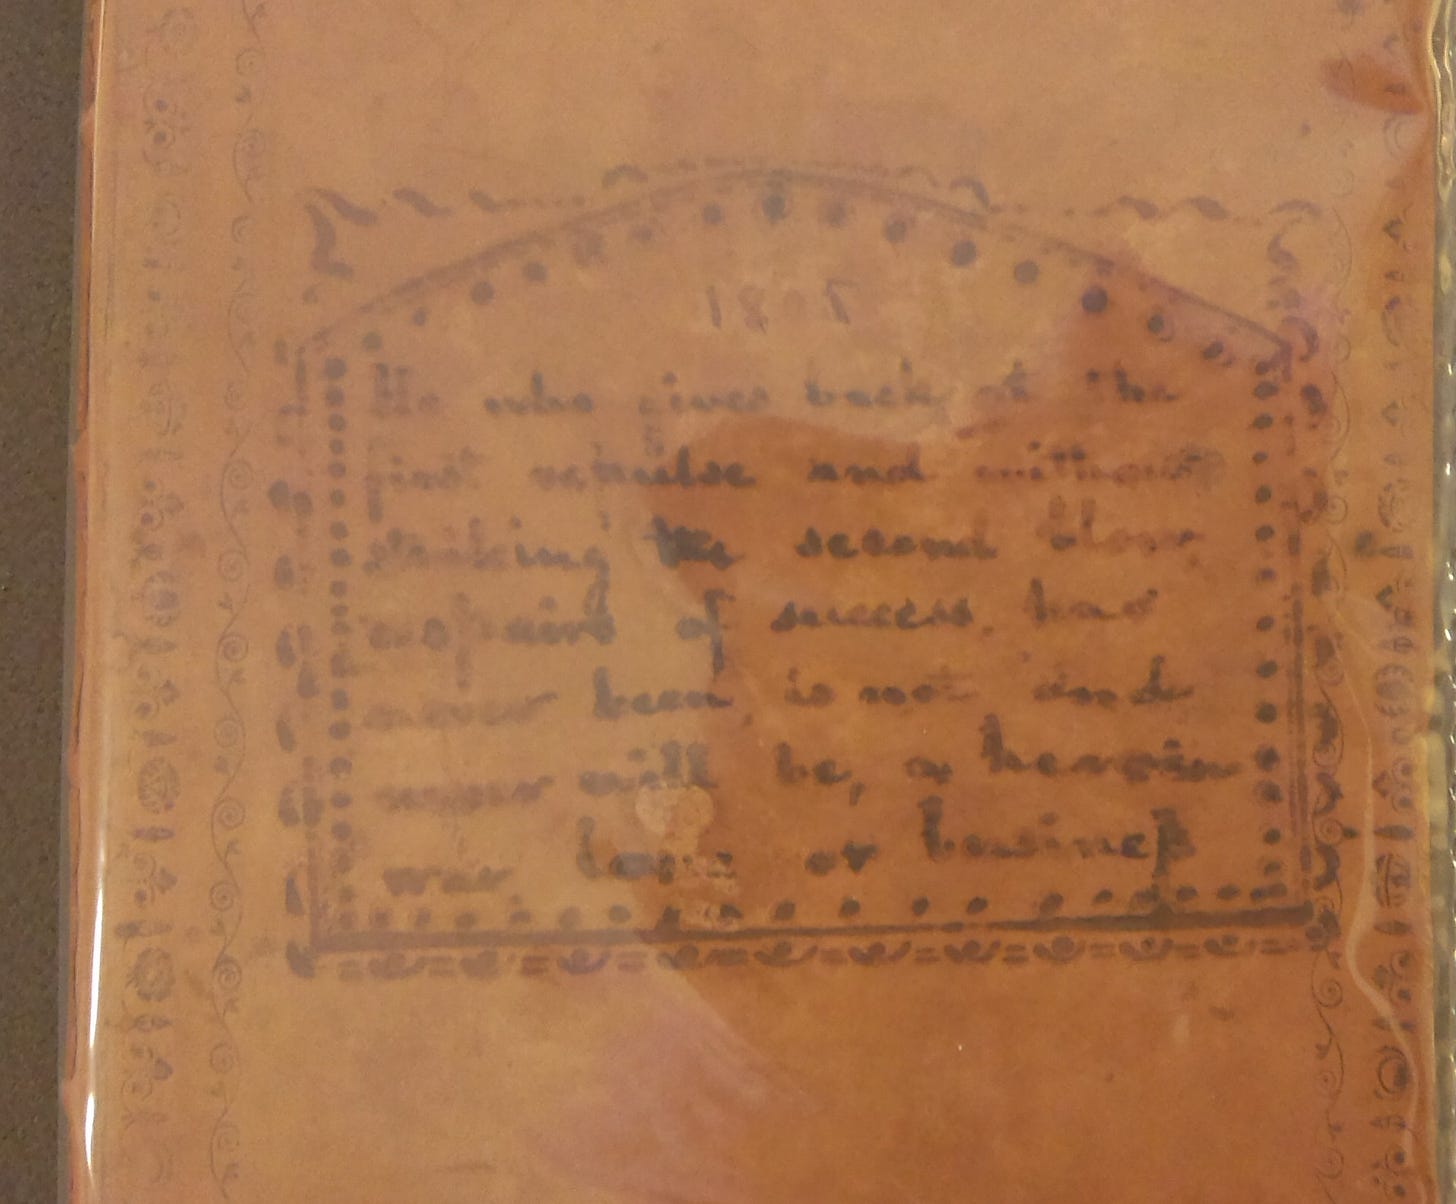 He who gives back at the
first repulse and without
striking the second blow
despairs of success, has
never been, is not and
never will be, a hero in
war, love or business